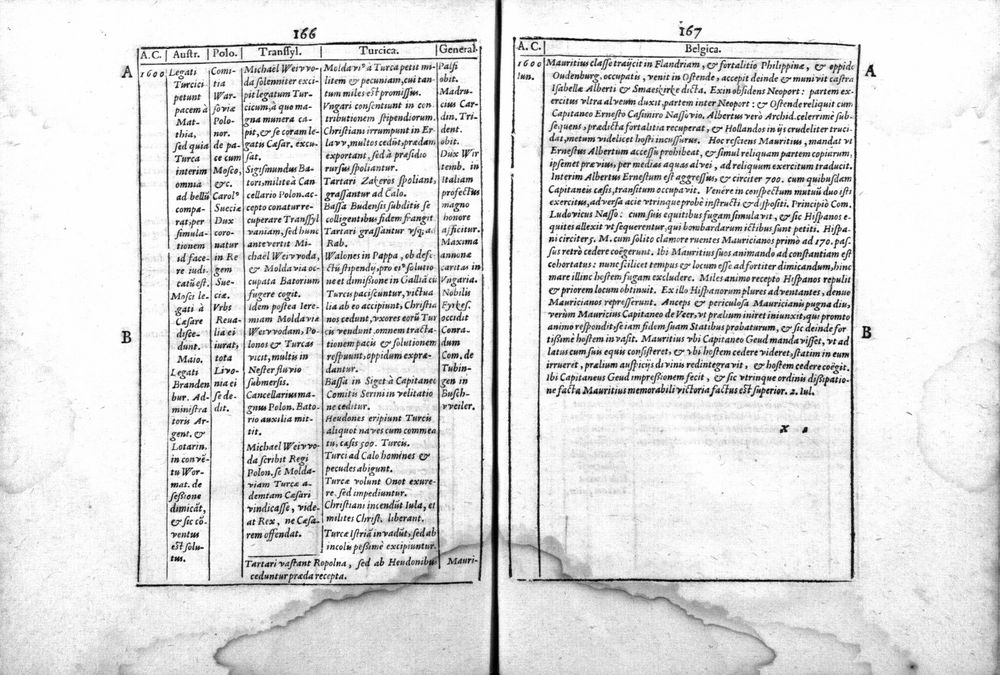 166
A.C. Austr. Polo. Transsyl. Turcica. General.
A
B
1600
Legati
Turcici
petunt
pacem à
Mat-
thia,
sed quia
Turca
interim
omnia
ad bellũ
compa-
rat; per
simula-
tionem
id face-
re iudi-
catũ est.
Mosci le-
gati à
Cæsare
disce-
dunt.
Maio.
Legati
Branden
bur. Ad-
ministra
toris Ar-
gent. &
Lotarin.
in convẽ-
tu Wor-
mat. de
seßione
dimicãt,
& sic cõ-
ventus
est solu-
tus.
Comi-
tia
War-
soviæ
Polo-
nor.
de pa-
ce cum
Mosco,
&c.
Carolꝰ
Sueciæ
Dux
coro-
natur
in Re
gem
Sue-
ciæ.
Vrbs
Reua-
lia ei
iurat,
tota
Livo-
nia ei
se de-
dit.
Michaël Weivvo-
da solenniter exci-
pit legatum Tur-
cicum, à quo ma-
gna munera ca-
pit, & se coram le-
gato Cæsar. excu-
sat.
Sigismundus Ba-
tori, milite à Can
cellario Polon. ac-
cepto conatur re-
cuperare Transsyl
vaniam, sed hunc
antevertit Mi-
chaël Weivvoda,
& Moldavia oc-
cupata Batorium
fugere cogit.
idem postea Iere-
miam Moldaviæ
Weivvodam, Po-
lonos & Turcas
vicit, multis in
Nester fluvio
submersis.
Cancellarius ma-
gnus Polon. Bato-
rio auxilia mit-
tit.
Michael Weivvo-
da scribit Regi
Polon. se Molda-
viam Turcæ a-
demtam Cæsari
vindicasse, vide-
at Rex, ne Cæsa-
rem offendat.
Moldaviꝰ à Turca petit mi-
litem & pecuniam, cui tan-
tum miles est promissus.
Vngari consentiunt in con-
tributionem stipendiorum.
Christiani irrumpunt in Er-
lavv, multos cedũt, prædam
exportant, sed à præsidio
rursus spoliantur.
Tartari Zakeros spoliant,
grassantur ad Calo.
Bassa Budensis subditis se
colligentibus fidem frangit
Tartari grassantur vsq; ad
Rab.
Walones in Pappa, ob defe-
ctũ stipendij, pro eiꝰ solutio
ne et dimißione in Galliã cũ
Turcis paciscuntur, victua
lia ab eo accipiunt, Christia
nos cedunt, vxores eorũ Tur
cis vendunt, omnem tracta-
tionem pacis & solutionem
respuunt, oppidum expræ-
dantur.
Bassa in Siget à Capitaneo
Comitis Serini in velitatio
ne ceditur.
Heudones eripiunt Turcis
aliquot naves cum commea
tu, cæsis 500. Turcis.
Turci ad Calo homines &
pecudes abigunt.
Turcæ volunt Onot exure-
re, sed impediuntur.
Christiani incendũt Iula, et
milites Christ. liberant.
Turcæ Istriã invadũt, sed ab
incolu peßimè excipiuntur.
Tartari vastant Ropolna, sed ab Heudonibus
ceduntur præda recepta.
Palfi
obit.
Madru-
cius Car
din. Tri-
dent.
obit.
Dux Wir
temb. in
Italiam
profectus
magno
honore
afficitur.
Maxima
annonæ
caritas in
Vngaria.
Nobilis
Eykes.
occidit
Conra-
dum
Com. de
Tubin-
gen in
Busch-
vveiler.
Mauri-
167
A.C. Belgica.
A
B
1600
Iun.
Mauritius classe traijcit in Flandriam, & fortalitio Philippinæ, & oppido
Oudenburg. occupatis, venit in Ostende, accepit deinde & munivit castra
Isabellæ Alberti & Smaeskirke dicta. Exin obsidens Neoport: partem ex-
ercitus vltra alveum duxit, partem inter Neoport: & Ostende reliquit cum
Capitaneo Ernesto Casimiro Nassovio. Albertus verò Archid. celerrimè sub-
sequens, prædicta fortalitia recuperat, & Hollandos in ijs crudeliter truci-
dat, metum videlicet hosti incussurus. Hoc resciens Mauritius, mandat vt
Ernestus Albertum accessu prohibeat, & simul reliquam partem copiarum,
ipsemet prævius, per medias aquas alvei, ad reliquum exercitum traducit.
Interim Albertus Ernestum est aggressus, & circiter 700. cum quibusdam
Capitaneis cæsis, transitum occupavit. Venêre in conspectum mutuũ duo isti
exercitus, adversa acie vtrinque probè instructi & dispositi. Principiò Com.
Ludovicus Nasso: cum suis equitibus fugam simulavit, & sic Hispanos e-
quites allexit vt sequerentur, qui bombardarum ictibus sunt petiti. Hispa-
ni circiter 3. M. cum solito clamore ruentes Mauricianos primò ad 170. pas-
sus retrò cedere coëgerunt. Ibi Mauritius suos animando ad constantiam est
cohortatus: nunc scilicet tempus & locum esse ad fortiter dimicandum, hinc
mare illinc hostem fugam excludere. Miles animo recepto Hispanos repulit
& priorem locum obtinuit. Ex illo Hispanorum plures adventantes, denuo
Mauricianos represserunt. Anceps & periculosa Mauricianis pugna diu,
verùm Mauricius Capitaneo de Veer, vt prælium iniret iniunxit, qui promto
animo respondit, se iam fidem suam Statibus probaturum, & sic deinde for-
tißimè hostem invasit. Mauritius vbi Capitaneo Geud mandavisset, vt ad
latus cum suis equis consisteret, & vbi hostem cedere videret, statim in eum
irrueret, prælium auspicijs divinis redintegravit, & hostem cedere coëgit.
Ibi Capitaneus Geud impreßionem fecit, & sic vtrinque ordinis dißipatio-
ne facta Mauritius memorabili victoria factus est superior. 2. Iul.